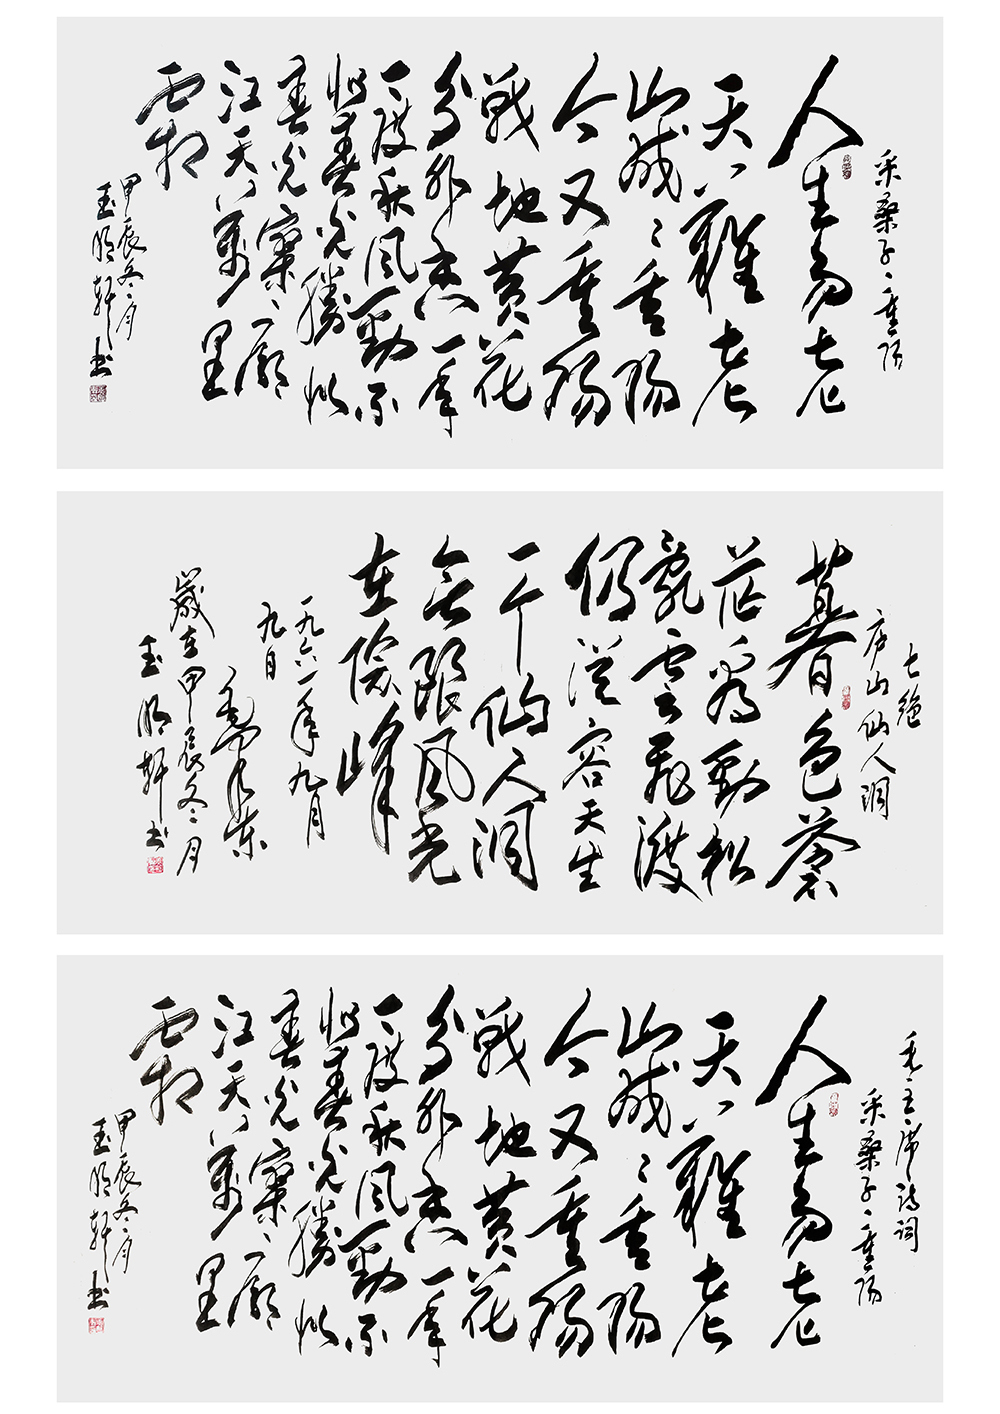 采桑子、重阳
人生易老
天难老
岁岁重阳
今又重阳
战地黄花
分外香一年
一度秋风劲不
似春光勝似
春光寥廓
江天万里
霜
甲辰冬月
玉明轩书
七绝
庐山仙人洞
暮色苍
茫看劲松
乱雲飞渡
仍从容天生
一个仙人洞
无限风光
在险峰
一九六一年九月
九日
毛泽东
岁在甲辰冬月
玉明轩书
毛主席诗词
采桑子、重阳
人生易老
天难老
岁岁重阳
今又重阳
战地黄花
分外香一年
一度秋风劲不
似春光勝似
春光寥廓
江天万里
霜
甲辰冬月
玉明轩书